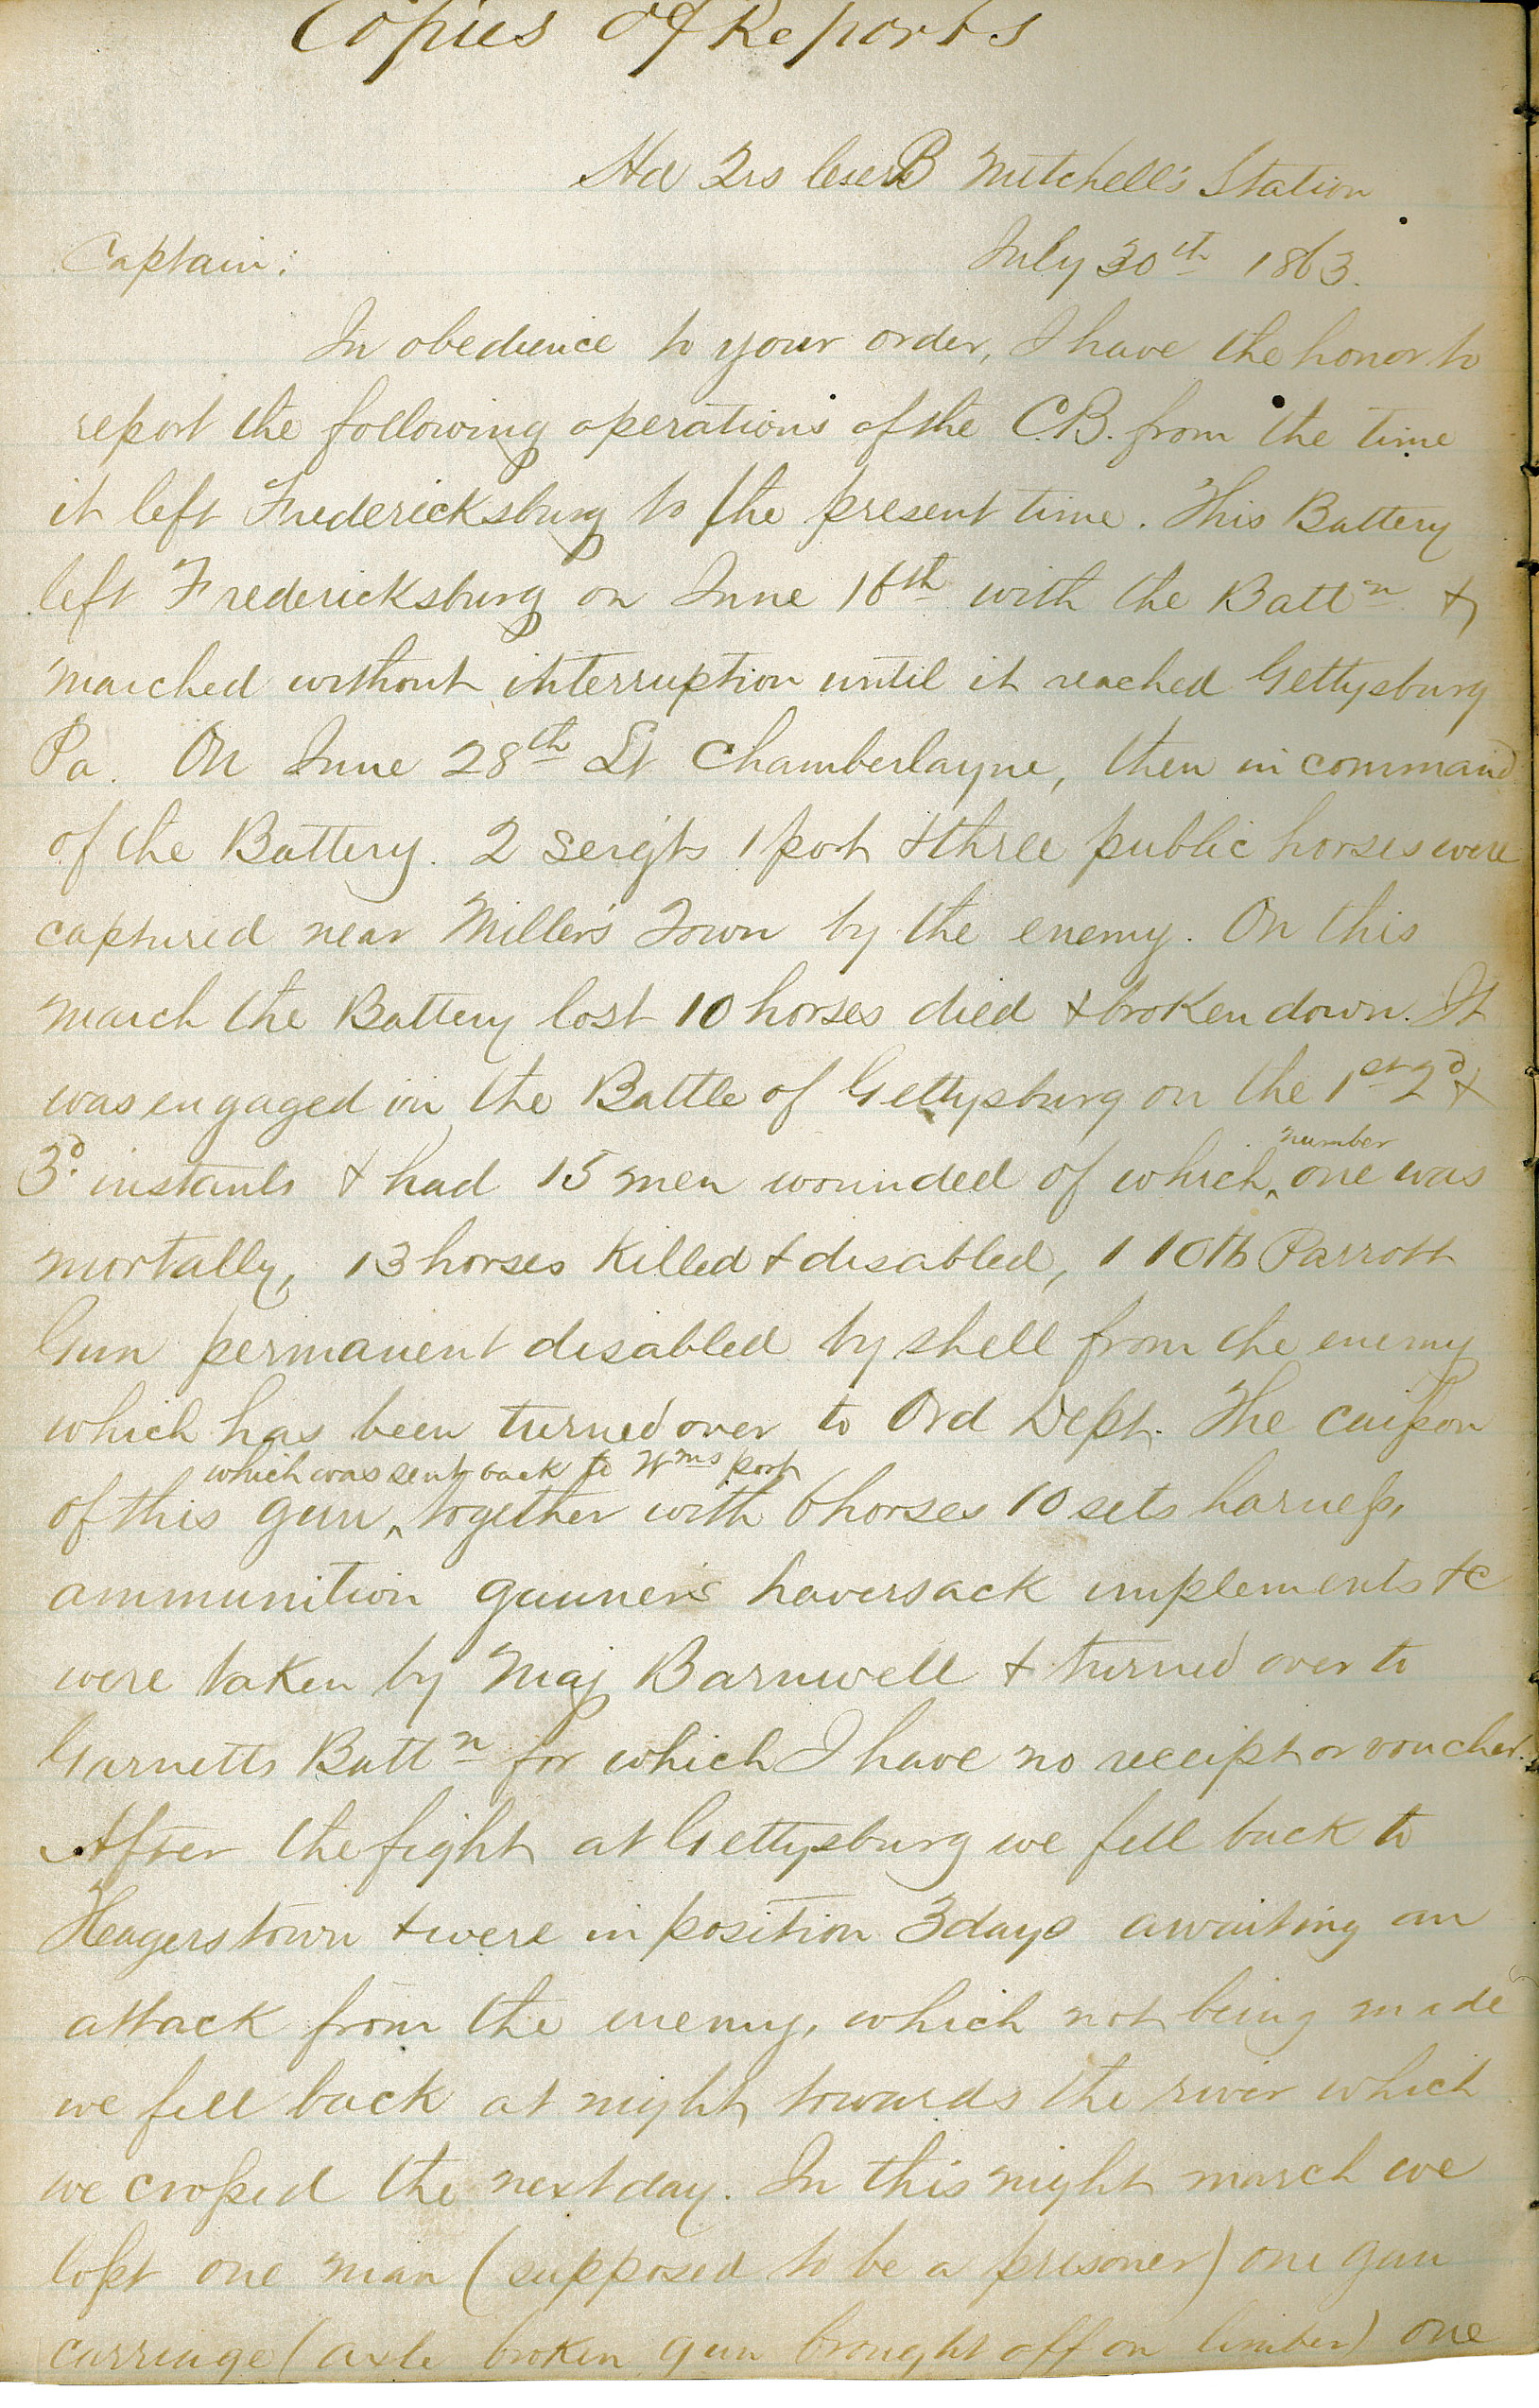 Copies of Reports
Hd Qrs Cren B Mitchell's Station
Captain: July 30th 1863.
In obedience to your order, I have the honor to
report the following operations of the C.B. from the time
it left Fredericksburg to the present time. This Battery
left Fredericksburg on June 16th with the Battn &
marched without interruption until it reached Gettysburg
Pa. On June 28th Lt Chamberlayne, then in command
of the Battery. 2 sergts 1 port & three public horses were
captured near Millers Town by the enemy. On this
march the Battery lost 10 horses died & broken down. It
was engaged in the Battle of Gettysburg on the 1st 2d &
3d. instants & had 15 men wounded of which ^number one was
mortally, 13 horses killed & disabled, 1 10 lb Parrott
Gun permanent disabled by shell from the enemy
which has been turned over to Ord Dept. The caison
which was sent back to Wms port
of this gun ^ together with 6 horses 10 sets harness,
ammunition gunner's haversack implements &c
were taken by Maj Barnwell & turned over to
Garnetts Battn for which I have no receipt or voucher.
After the fight at Gettysburg we fell back to
Heagerstown & were in position 3 days awaiting an
attack from the enemy, which not being made
we fell back at night towards the river which
we crossed the next day. In this night march we
lost one man (supposed to be a prisoner) one gun
carriage (axle broken gun brought off on limber) one